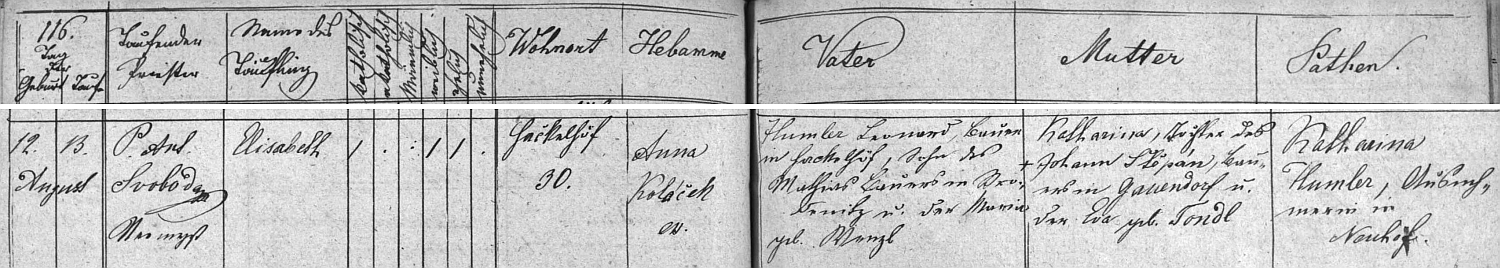 116.
Tag der
Geburt Taufe
Taufender
Priester
Name des
Täufling
katholisch
akatholisch
Männlich
weiblich
ehelich
unehelich
Wohnort
Hebamme
Vater
Mutter
Pathen.
12. 13.
August
P. Ant.
Svoboda
Elisabeth
1 . . 1 1 .
Hackelhöf
30.
Anna
Koláček
Humler Leonard, Bauer
in Hackelhöf, Sohn des
Mathias Bauers in
u. der Maria
geb. Wenzl
Katharina, Tochter des
+ Johann Štěpán, Bau-
ers in Gauendorf u.
der Eva geb. Tondl
Katharina
Humler, Ausneh-
merin in
Neuhof.